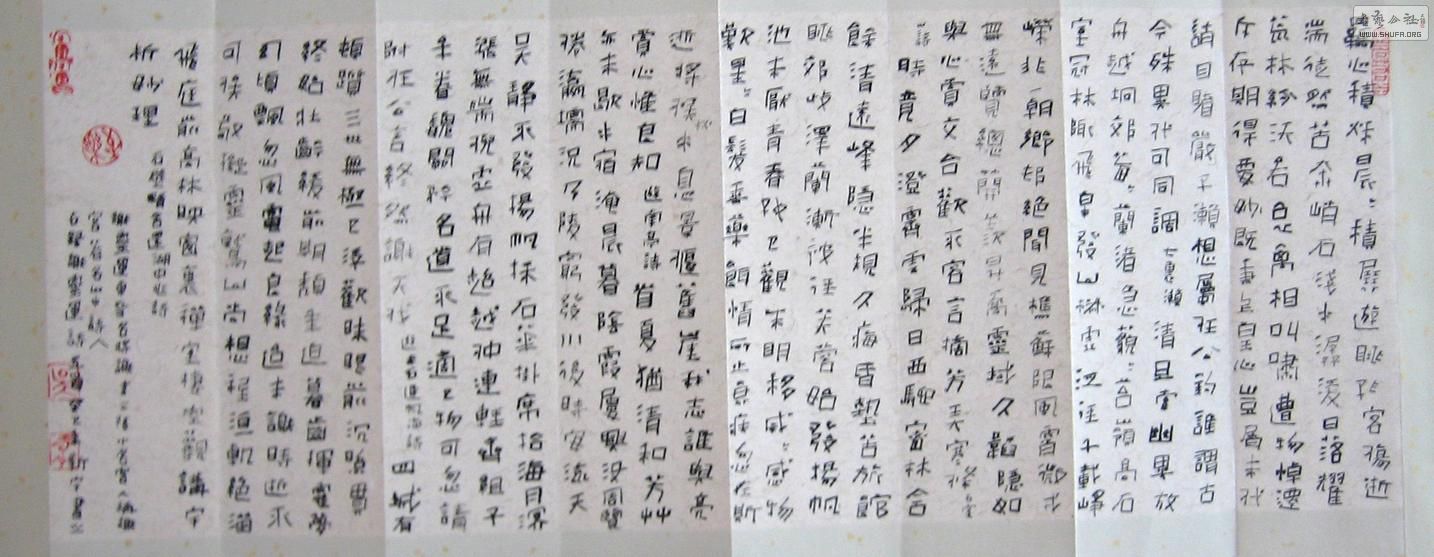 羈心積秋晨晨積展遊眺孤客傷逝
湍徒旅苦奔峭石淺水潺湲日落耀
荒林紛沃若哀禽相叫嘯遭物悼遷
斥存期得要妙既秉上皇心豈屑末代
誚目睹嚴子瀨想屬任公釣誰謂古
今殊異代可同調 七里瀨 清旦索幽異放
舟越坰郊莓莓蘭渚急藐藐苔嶺高石
室冠林陬飛泉發山椒虛泛徑千載崢
嶸非一朝鄉村絕聞見樵蘇限風霄微戎
無遠覽總笄羨升喬靈域久韜隱如
與心賞交合歡不容言摘芳弄寒條 石室山詩
時竟夕澄霽雲歸日西馳密林含
餘清遠峰隱半規久痗昏墊苦旅館
眺郊歧澤蘭漸被徑芙蓉始發揚帆
池未厭青春好已觀朱明移慼慼感物
歎星星白髮垂藥餌情所止衰疾忽在斯
逝將候秋水息景偃舊崖我志誰與亮
賞心惟良知 遊南亭詩 首夏猶清和芳艸
亦未歇水宿淹晨暮陰霞屢興沒周覽
倦瀛壖況乃陵窮發川后時安流天
吳靜不發揚帆採石華掛席拾海月溟
漲無端倪虛舟有超越仲連輕齊組子
牟眷魏闕矜名道不足適己物可忽請
附任公言終然謝天伐 遊赤石進帆海詩 四城有
頓躓三世無極已浮歡昧眼前沉照貫
終始壯齡緩前期頹年迫暮齒揮霍夢
幻頃飄忽風電起良緣迨未謝時逝不
可俟敬擬靈鷲山尚想祇洹軌絕溜
飛庭前高林映窗裏禪室棲空觀講宇
析妙理 石壁精舍還湖中作詩
WWW.SHUFA.ORG